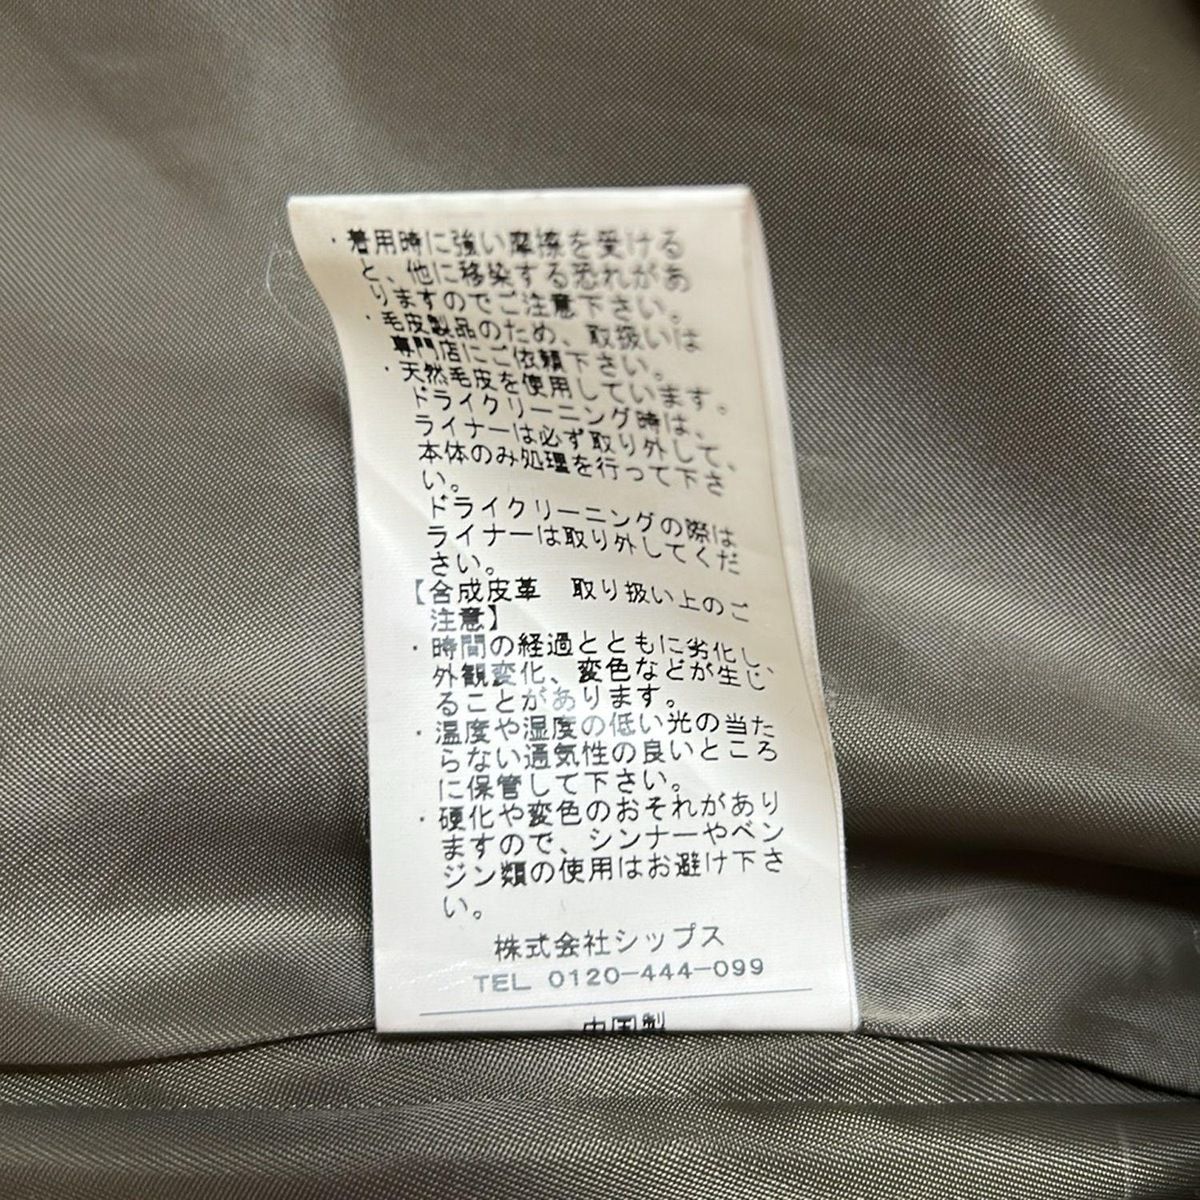 ・着用時に強い摩擦を受ける
と、他に移染する恐れがあ
りますのでご注意下さい。
・毛皮製品のため、取扱いは
専門店にご依頼下さい。
・天然毛皮を使用しています。
ドライクリーニング時は、
ライナーは必ず取り外して、
本体のみ処理を行って下さ
い。
ドライクリーニングの際は
ライナーは取り外してくだ
さい。
【合成皮革　取り扱い上のご
注意】
・時間の経過とともに劣化し、
外観変化、変色などが生じ
ることがあります。
・温度や湿度の低い光の当た
らない通気性の良いところ
に保管して下さい。
・硬化や変色のおそれがあり
ますので、シンナーやベン
ジン類の使用はお避け下さ
い。
株式会社シップス
TEL 0120-444-099
中国製